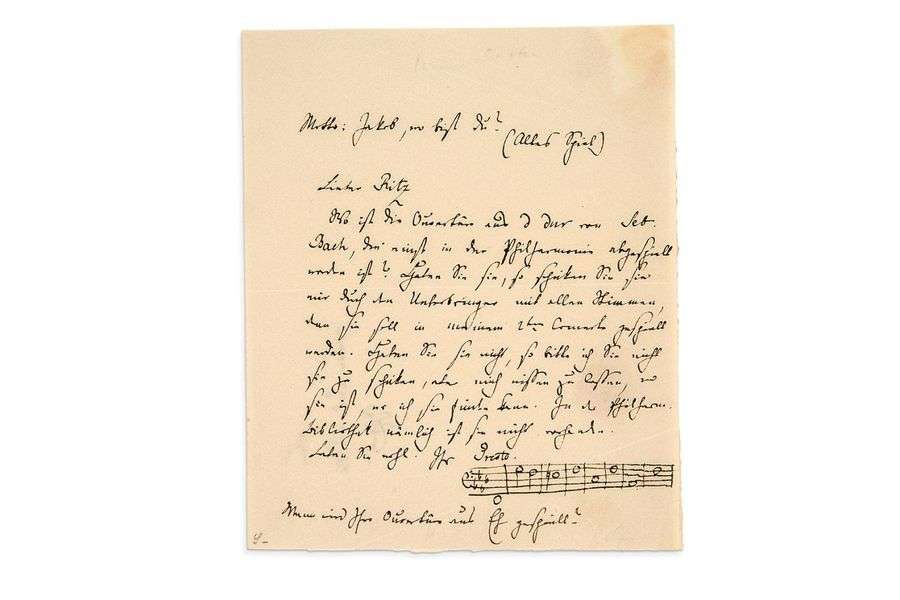 Motto: Jakob, wo bist du?
(Altes Spiel)
Lieber Fritz
Wo ist die Ouverture aus D dur von Seb.
Bach, die einst in der Philharmonie abgespielt
worden ist? Haben Sie sie, so schiken Sie sie
mir durch den Ueberbringer mit allen Stimmen,
denn sie soll in meinem 2ten Concerte gespielt
werden. Haben Sie sie nicht, so bitte ich Sie nicht
sie zu schiken, aber mich wissen zu lassen, wo
sie ist, wo ich sie finden kann. In der Philharm.
Bibliothek nämlich ist sie nicht vorhanden.
Leben Sie wohl. Ihr
Presto.
Wann wird Ihre Ouverture aus Es gespielt?